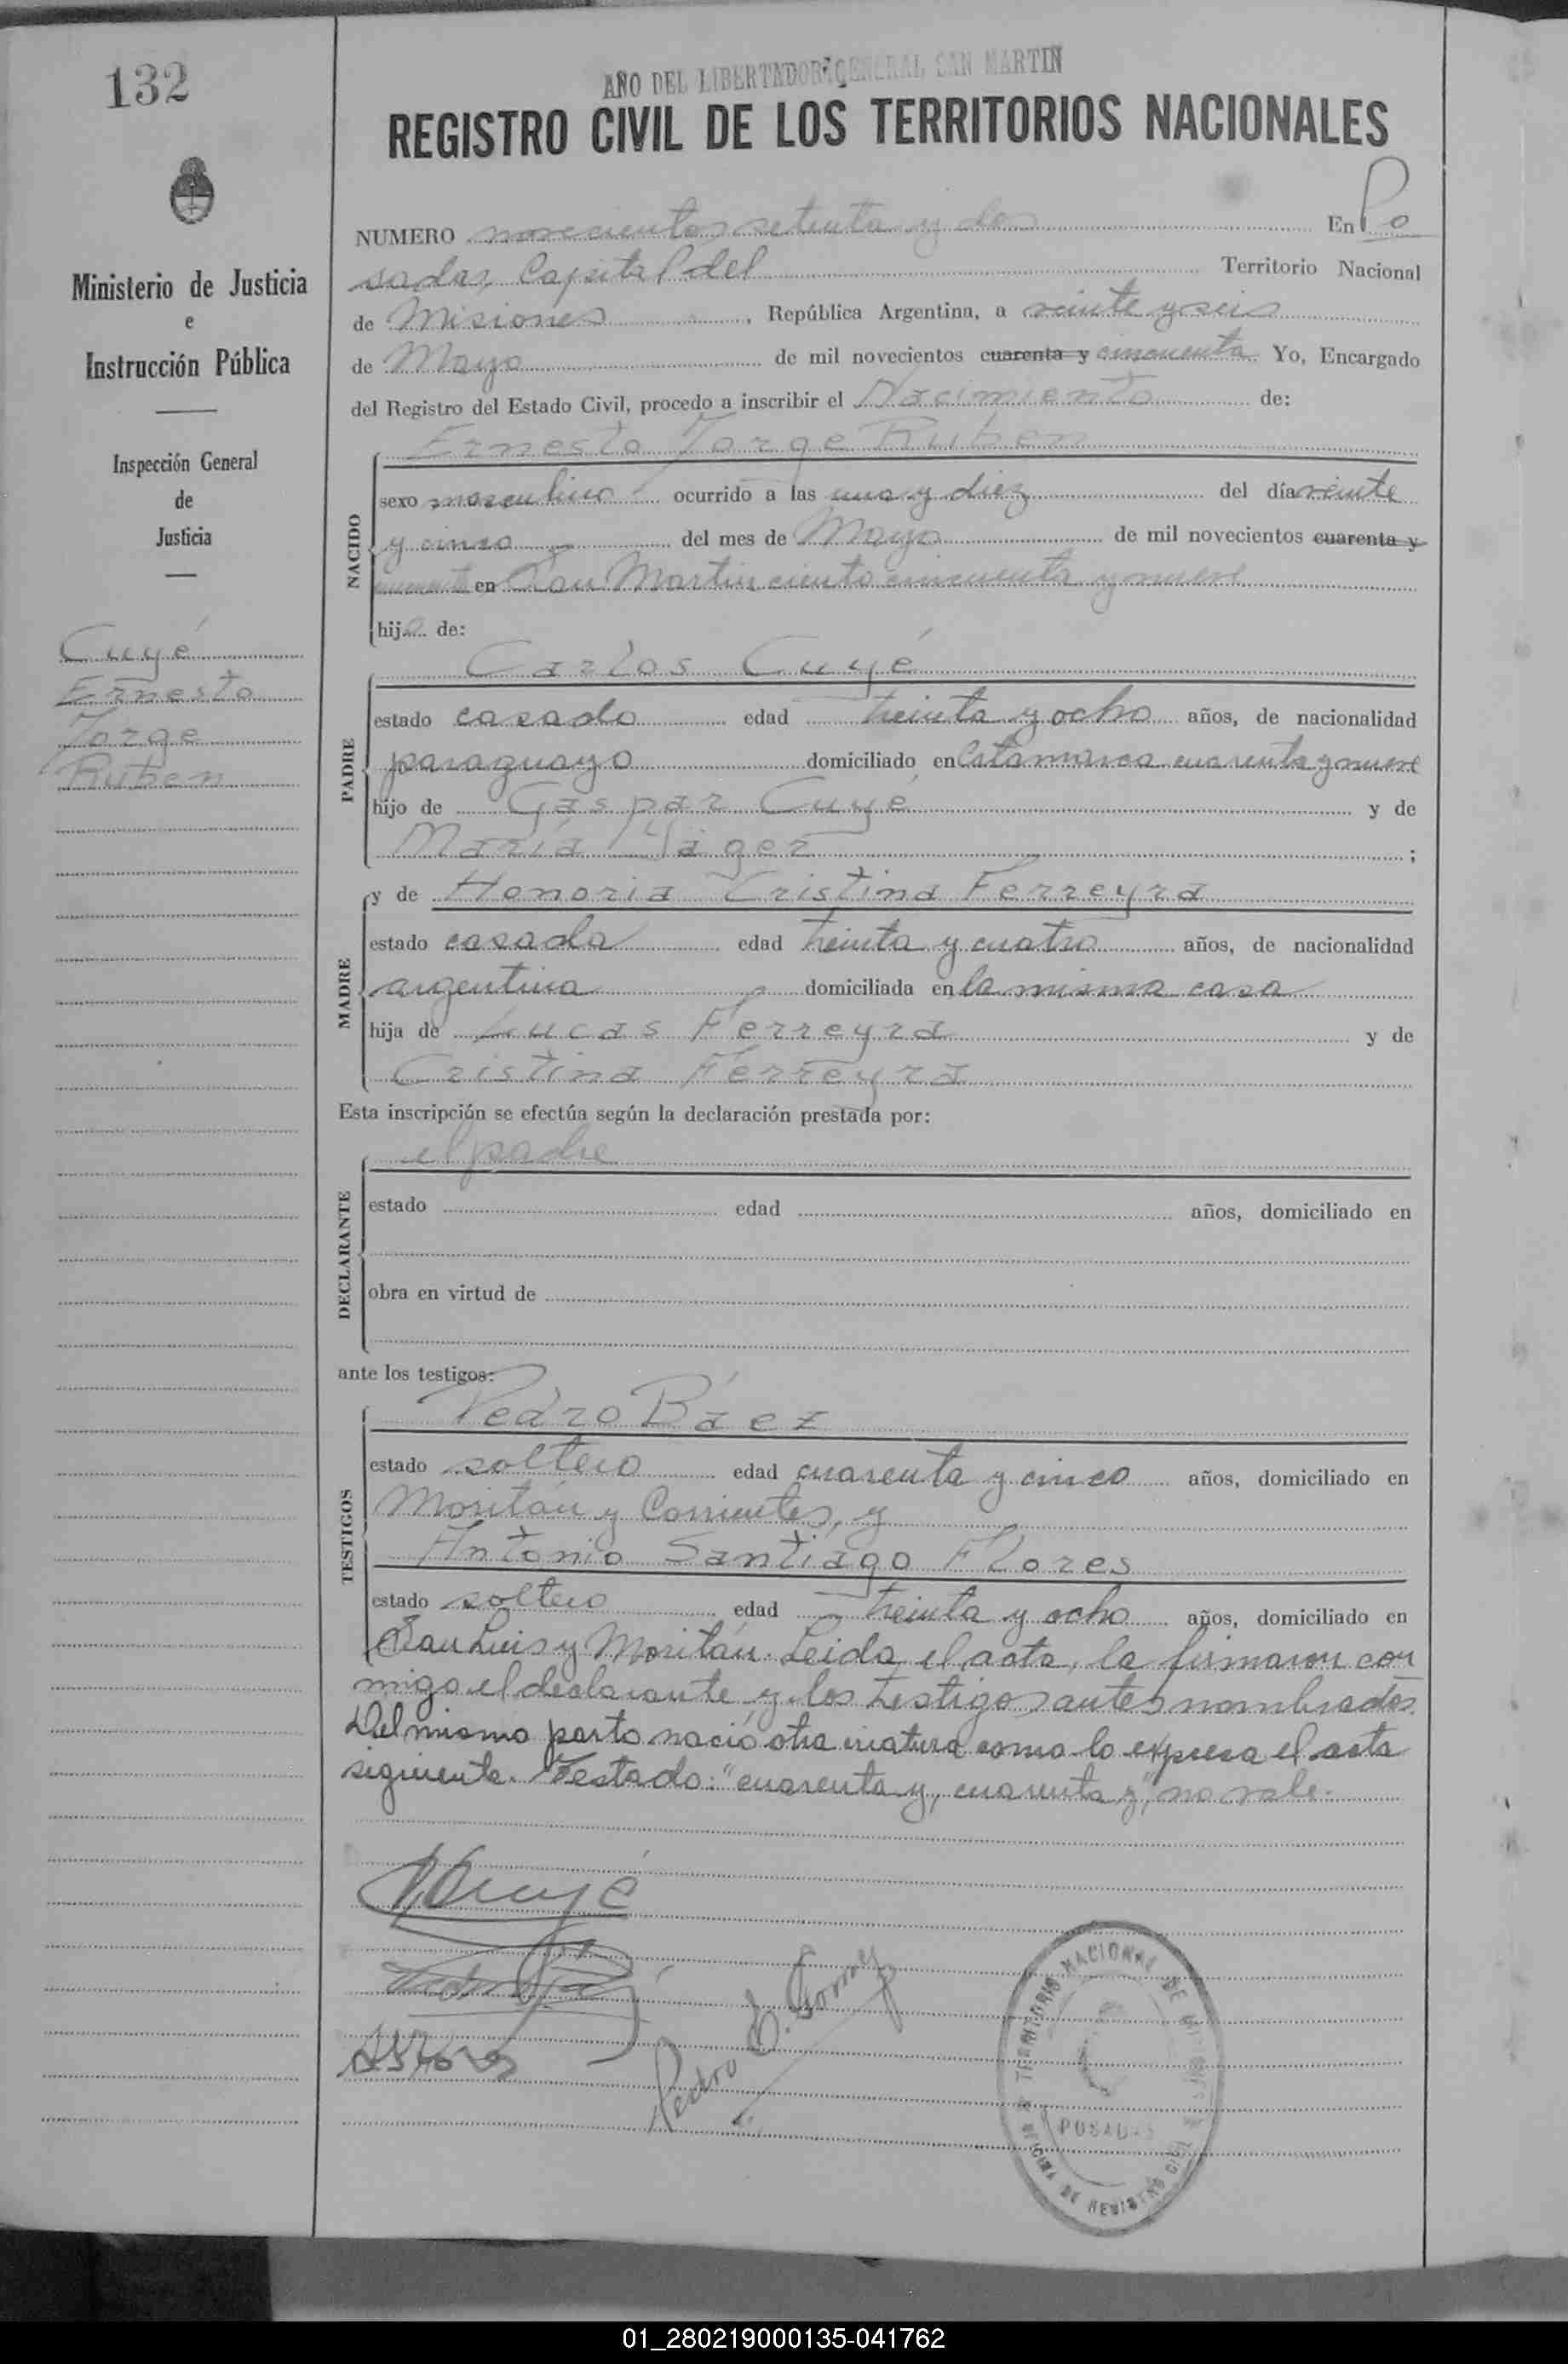 132
Ministerio de Justicia
e
Instrucción Pública
Inspección General
de
Justicia
Cuyé
Ernesto
Jorge
Ruben
AÑO DEL LIBERTADOR GENERAL SAN MARTIN
REGISTRO CIVIL DE LOS TERRITORIOS NACIONALES
NUMERO novecientos setenta y dos En Po
sadas, Capital del Territorio Nacional
de Misiones, República Argentina, a veinte y seis
de Mayo de mil novecientos cuarenta y cincuenta Yo, Encargado
del Registro del Estado Civil, procedo a inscribir el Nacimiento de:
Ernesto Jorge Ruben
NACIDO
sexo masculino ocurrido a las una y diez del día veinte
y cinco del mes de Mayo de mil novecientos cuarenta y
cincuenta en San Martin ciento cincuenta y nueve
hijo de:
Carlos Cuyé
PADRE
estado casado edad treinta y ocho años, de nacionalidad
paraguayo domiciliado en Catamarca cuarenta y nueve
hijo de Gaspar Cuyé y de
María Yager ;
y de Honoria Cristina Ferreyra
MADRE
estado casada edad treinta y cuatro años, de nacionalidad
argentina domiciliada en la misma casa
hija de Lucas Ferreyra y de
Cristina Ferreyra
Esta inscripción se efectúa según la declaración prestada por:
el padre
DECLARANTE
estado edad años, domiciliado en
obra en virtud de
ante los testigos:
Pedro Báez
TESTIGOS
estado soltero edad cuarenta y cinco años, domiciliado en
Moritán y Corrientes, y
Antonio Santiago Flores
estado soltero edad treinta y ocho años, domiciliado en
San Luis y Moritán. Leida el acta, la firmaron con
migo el declarante y los testigos antes nombrados.
Del mismo parto nació otra criatura como lo expresa el acta
siguiente. Testado: "cuarenta y, cuarenta y", no vale.
Cuyé
ASFlores
Pedro
TERRITORIO NACIONAL DE MISIONES
POSADAS
OFICINA DE REGISTRO CIVIL
01_280219000135-041762